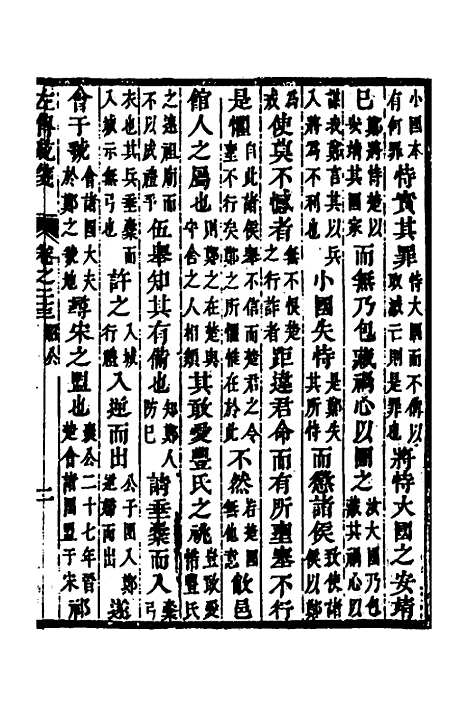 小國本有何罪恃實其罪恃大國而不備以取滅亡則是罪也將恃大國之安靖
已鄭將恃楚以安靖其國家而無乃包藏禍心以圖之汝大國乃包藏其禍心以
謀我鄭言其以兵入將為不利也小國失恃是鄭失其所恃而懲諸侯致使諸侯以鄭
為戒使莫不憾者無不恨楚之行詐者距違君命而有所壅塞不行
是懼自此諸侯舉不信而楚君之令壅不行矣鄭之所懼惟在於此不然若楚國無他意敝邑
館人之屬也則鄭之在楚與守舍之人相類其敢愛豐氏之祧豈敢愛惜豐氏
之遠祖廟而不以成禮乎伍舉知其有備也知鄭人防已請垂櫜而入櫜弓
衣也其兵垂櫜而入城示無弓也許之入城行聘入逆而出公子圍入鄭逆婚而出遂
會于虢會諸國大夫於鄭之虢地尋宋之盟也襄公二十七年晉楚會諸國盟于宋祁
左傳統箋 卷之二三 昭公 二